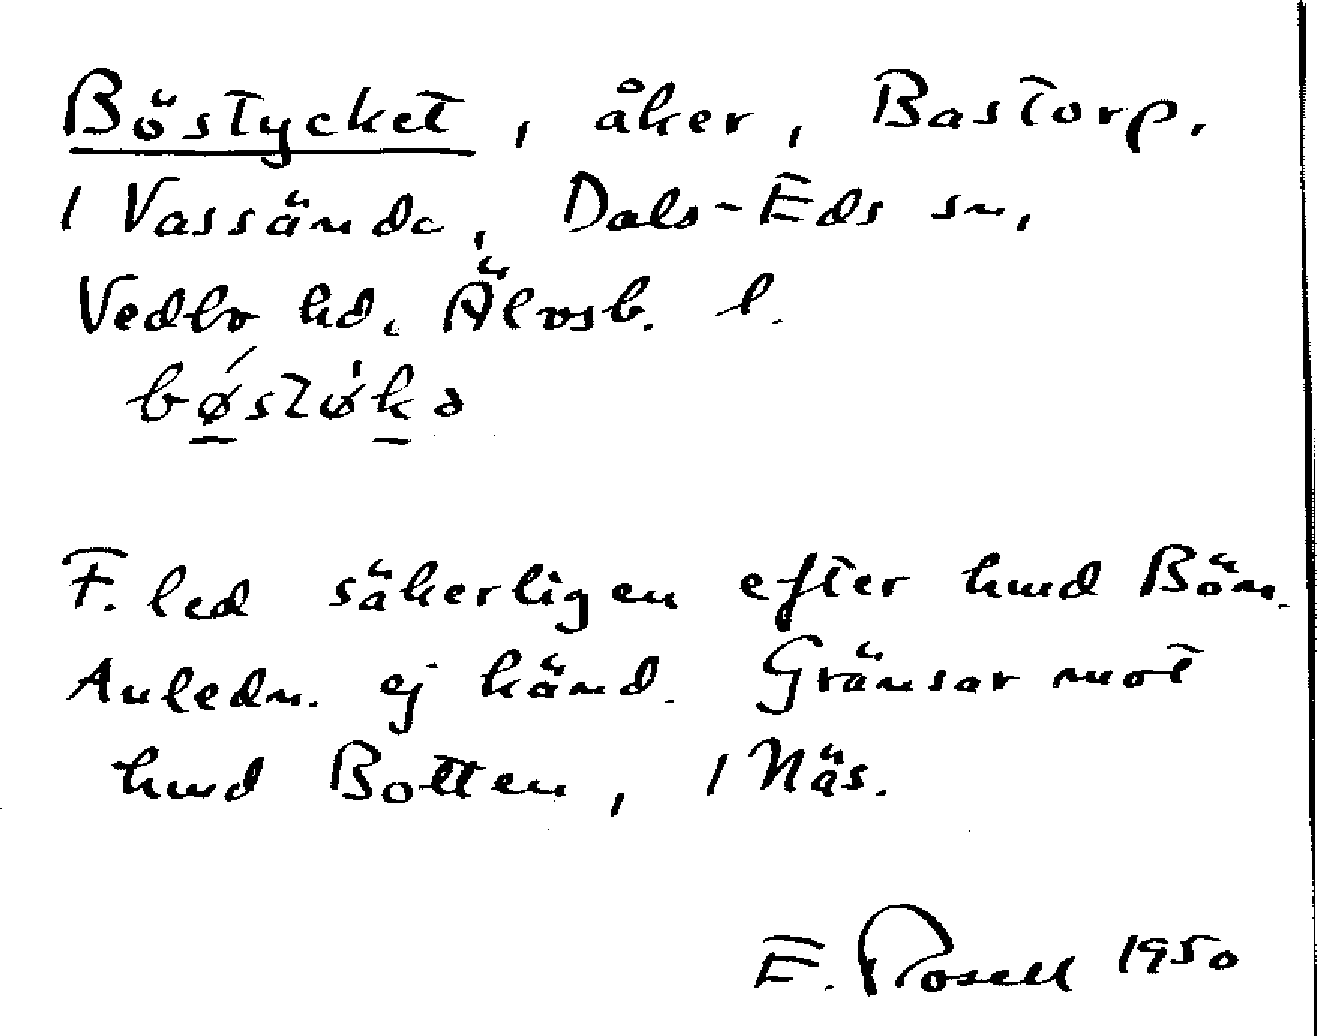 Böstycket, åker, Bastorp,
1 Vassända, Dals-Eds sn,
Vedbo hd, Älvsb. l.
bǿstø̀kə
F. led säkerligen efter hmd Bön.
Anledn. ej känd. Gränsar mot
hmd Botten, 1 Näs.
E. Rosell 1950